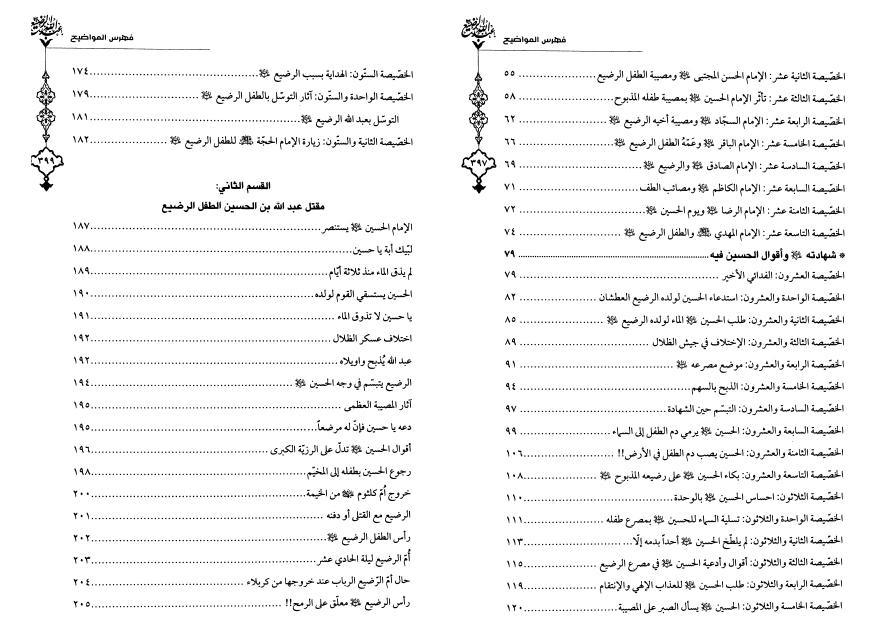 فهرس المواضيع
٣٩٧
الخصّيصة الثانية عشر: الإمام الحسن المجتبى ﷺ ومصيبة الطفل الرضيع ........ ٥٥
الخصّيصة الثالثة عشر: تأثّر الإمام الحسين ﷺ بمصيبة طفله المذبوح ........ ٥٨
الخصّيصة الرابعة عشر: الإمام السجّاد ﷺ ومصيبة أخيه الرضيع ﷺ ........ ٦٢
الخصّيصة الخامسة عشر: الإمام الباقر ﷺ وعَمّهُ الطفل الرضيع ﷺ ........ ٦٦
الخصّيصة السادسة عشر: الإمام الصادق ﷺ والرضيع ﷺ ........ ٦٩
الخصّيصة السابعة عشر: الإمام الكاظم ﷺ ومصائب الطف ........ ٧١
الخصّيصة الثامنة عشر: الإمام الرضا ﷺ ويوم الحسين ﷺ ........ ٧٢
الخصّيصة التاسعة عشر: الإمام المهدي ﷺ والطفل الرضيع ﷺ ........ ٧٤
* شهادته ﷺ وأقوال الحسين فيه ........ ٧٩
الخصّيصة العشرون: الفدائي الأخير ........ ٧٩
الخصّيصة الواحدة والعشرون: استدعاء الحسين لولده الرضيع العطشان ........ ٨٢
الخصّيصة الثانية والعشرون: طلب الحسين ﷺ الماء لولده الرضيع ﷺ ........ ٨٥
الخصّيصة الثالثة والعشرون: الإختلاف في جيش الظلال ........ ٨٩
الخصّيصة الرابعة والعشرون: موضع مصرعه ﷺ ........ ٩١
الخصّيصة الخامسة والعشرون: الذبح بالسهم ........ ٩٤
الخصّيصة السادسة والعشرون: التبسّم حين الشهادة ........ ٩٧
الخصّيصة السابعة والعشرون: الحسين ﷺ يرمي دم الطفل إلى السماء ........ ٩٩
الخصّيصة الثامنة والعشرون: الحسين يصب دم الطفل في الأرض!! ........ ١٠٦
الخصّيصة التاسعة والعشرون: بكاء الحسين ﷺ على رضيعه المذبوح ﷺ ........ ١٠٨
الخصّيصة الثلاثون: احساس الحسين ﷺ بالوحدة ........ ١١٠
الخصّيصة الواحدة والثلاثون: تسلية السماء للحسين ﷺ بمصرع طفله ........ ١١١
الخصّيصة الثانية والثلاثون: لم يلطّخ الحسين ﷺ أحداً بدمه إلّا... ........ ١١٣
الخصّيصة الثالثة والثلاثون: أقوال وأدعية الحسين ﷺ في مصرع الرضيع ........ ١١٥
الخصّيصة الرابعة والثلاثون: طلب الحسين ﷺ للعذاب الإلهي والإنتقام ........ ١١٩
الخصّيصة الخامسة والثلاثون: الحسين ﷺ يسأل الصبر على المصيبة ........ ١٢٠
فهرس المواضيع
٣٩٩
الخصّيصة الستّون: الهداية بسبب الرضيع ﷺ ........ ١٧٤
الخصّيصة الواحدة والستّون: آثار التوسّل بالطفل الرضيع ﷺ ........ ١٧٩
التوسّل بعبد الله الرضيع ﷺ ........ ١٨١
الخصّيصة الثانية والستّون: زيارة الإمام الحجّة ﷺ للطفل الرضيع ﷺ ........ ١٨٢
القسم الثاني:
مقتل عبد الله بن الحسين الطفل الرضيع
الإمام الحسين ﷺ يستنصر ........ ١٨٧
لبّيك أبة يا حسين ........ ١٨٨
لم يذق الماء منذ ثلاثة أيّام ........ ١٨٩
الحسين يستسقي القوم لولده ........ ١٩٠
يا حسين لا تذوق الماء ........ ١٩١
اختلاف عسكر الظلال ........ ١٩٢
عبد الله يُذبح واويلاه ........ ١٩٢
الرضيع يتبسّم في وجه الحسين ﷺ ........ ١٩٤
آثار المصيبة العظمى ........ ١٩٥
دعه يا حسين فإنّ له مرضعاً ........ ١٩٥
أقوال الحسين ﷺ تدلّ على الرزيّة الكبرى ........ ١٩٦
رجوع الحسين بطفله إلى المخيّم ........ ١٩٨
خروج أُمّ كلثوم ﷺ من الخيمة ........ ٢٠٠
الرضيع مع القتلى أو دفنه ........ ٢٠١
رأس الطفل الرضيع ﷺ ........ ٢٠٢
أُمّ الرضيع ليلة الحادي عشر ........ ٢٠٣
حال أمّ الرّضيع الرباب عند خروجها من كربلاء ........ ٢٠٤
رأس الرضيع ﷺ معلّق على الرمح!! ........ ٢٠٥